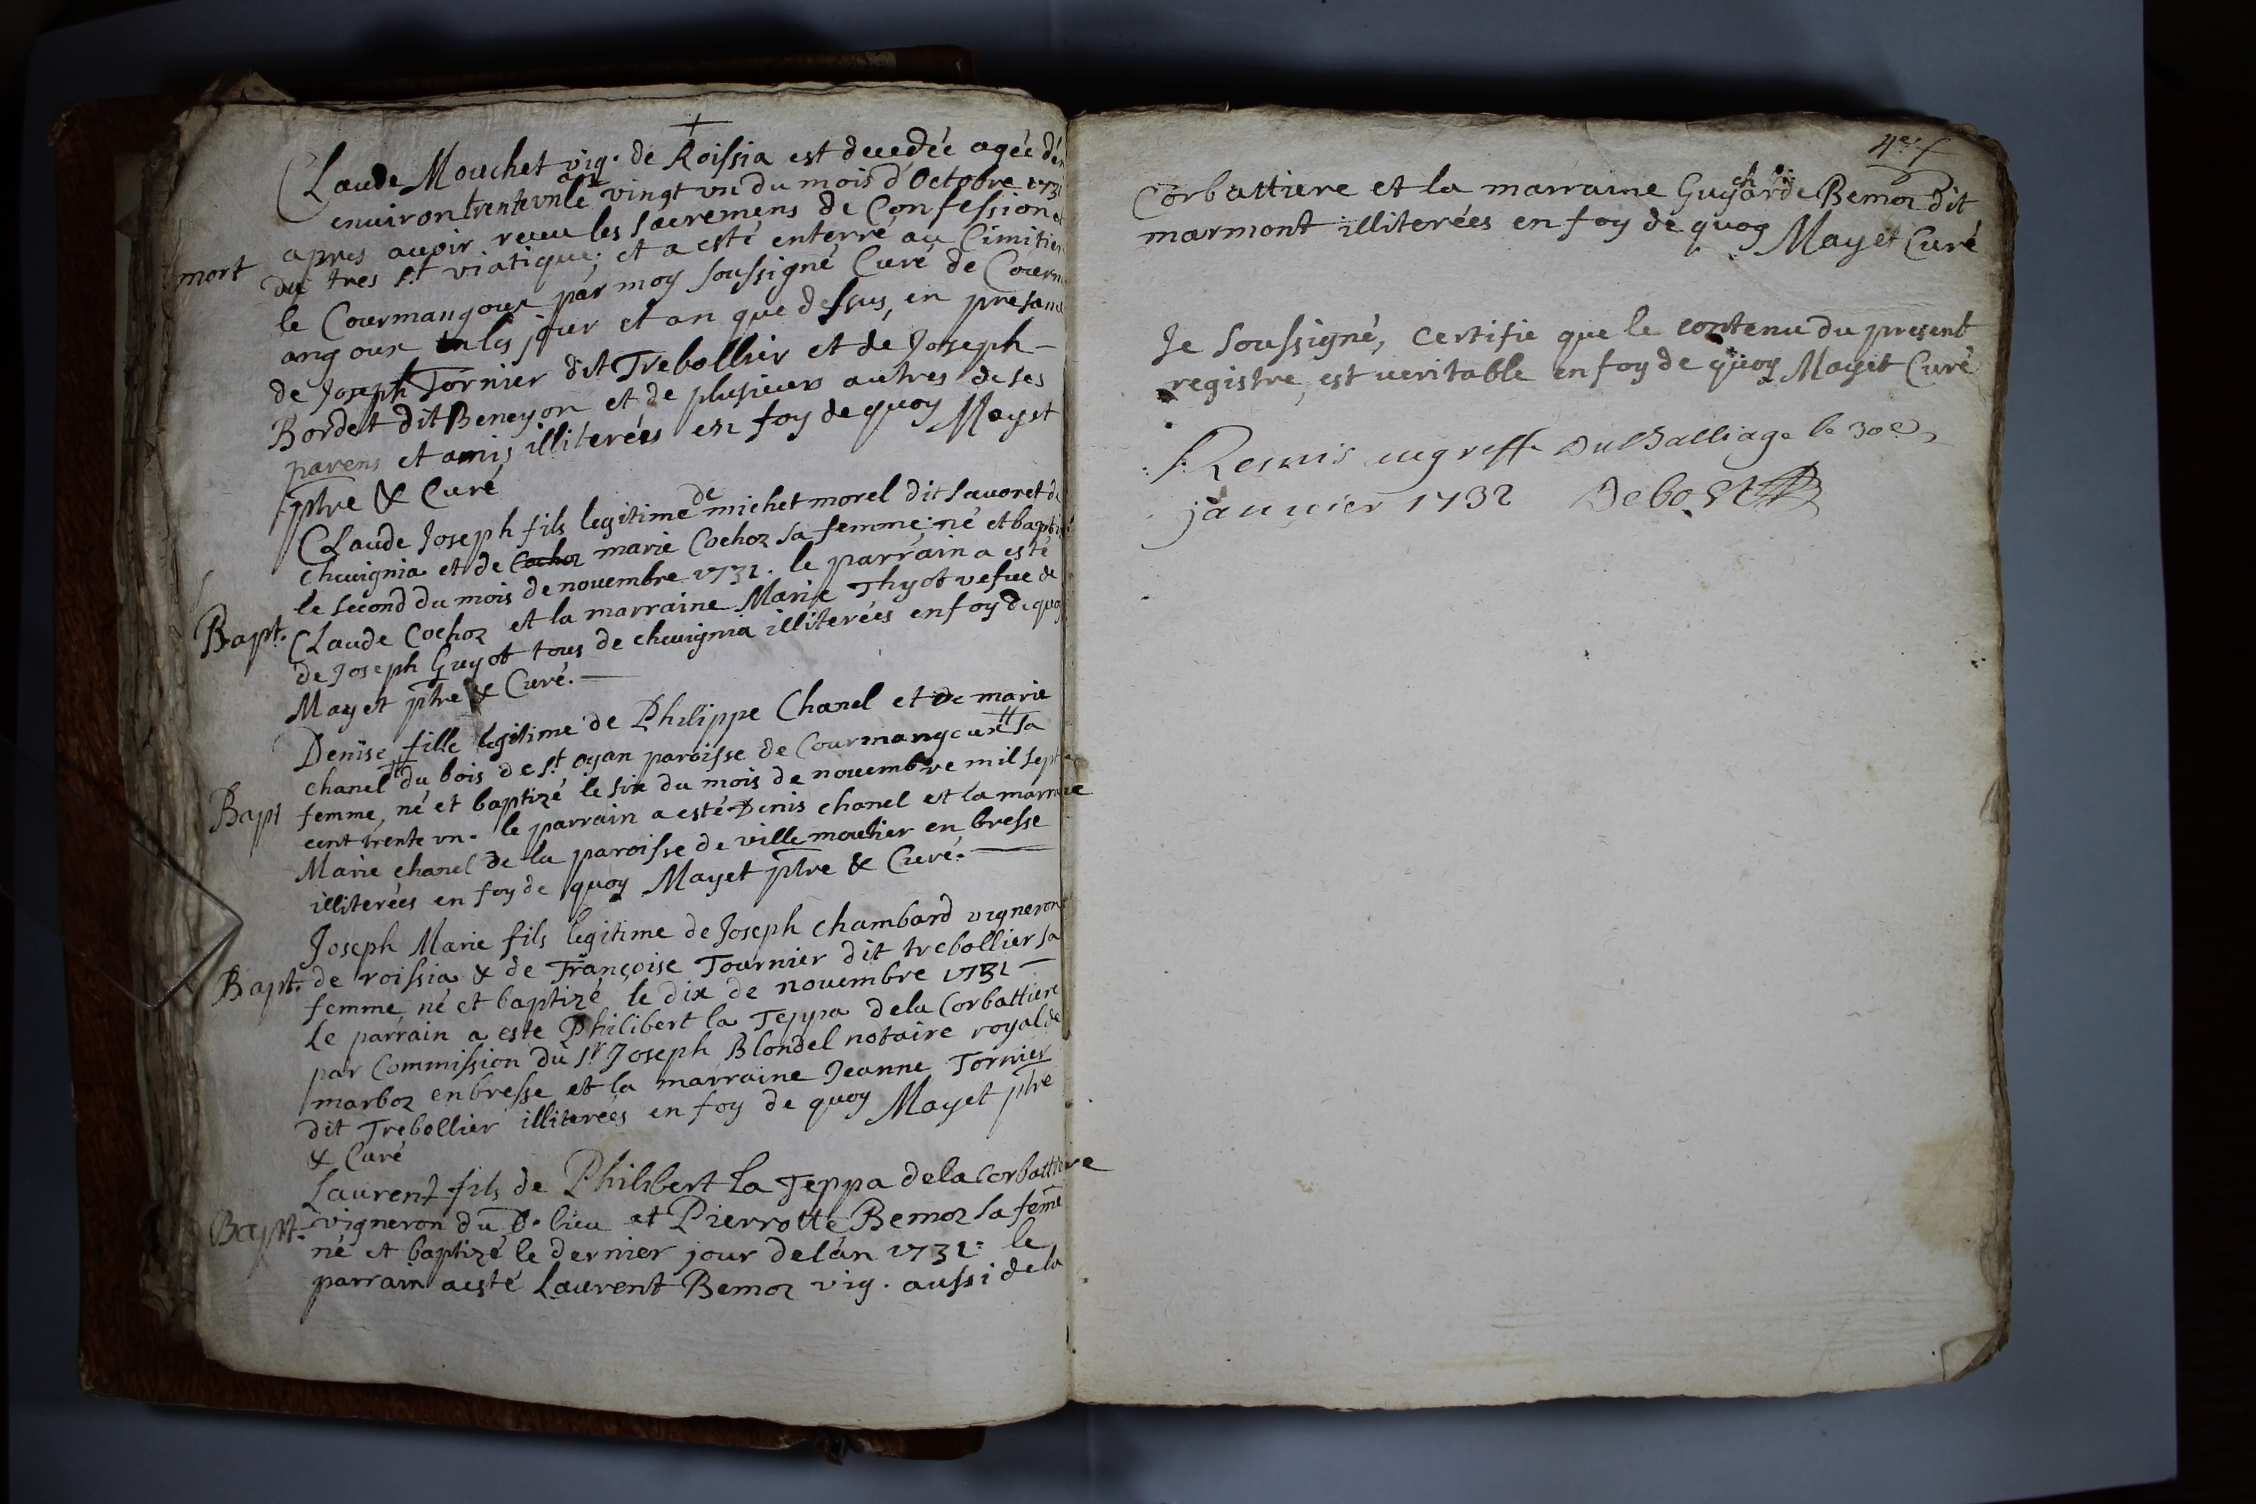 Claude Mouchet vig. de Roissia est decedée agée d'en
environ trente un an le vingt un du mois d'Octobre 1731
apres avoir receu les sacremens de Confession et
mort
du tres st viatique, et a esté enterré au Cimitier
le Courmangoux par moy soussigné Curé de Courm
angoux les jour et an que dessus, en presance
de Joseph Tornier dit Trebollier et de Joseph
Bordet dit Beneyon et de plusieurs autres de ses
parens et amis illiterées en foy de quoy Mayet
ptre & Curé
Claude Joseph fils legitime de michet morel dit Sauoret de
cheuignia et de Cochoz marie Cochoz sa femme, né et baptizé
le second du mois de nouembre 1731. le parrain a esté
Bapt. Claude Cochoz et la marraine Marie Thyot vefue de
de Joseph Guyot tous de cheuignia illiterées en foy de quoy
Mayet ptre & Curé.
Denise fille legitime de Philippe Chanel et de marie
chanel du bois de st oyan paroisse de Courmangoux sa
Bapt femme, né et baptizé le six du mois de nouembre mil sept
cent trente un. le parrain a esté Denis chanel et la marraine
Marie chanel de la paroisse de ville moutier en bresse
illiterées en foy de quoy Mayet ptre & Curé.
Joseph Marie fils legitime de Joseph chambard vigneron
Bapt. de roissia & de Françoise Tournier dit trebollier sa
femme né et baptizé le dix de nouembre 1731
Le parrain a este Philibert la Teppa de la Corbattiere
par Commission du sr Joseph Blondel notaire royal de
marboz en bresse et la marraine Jeanne Tornier
dit Trebollier illiterées en foy de quoy Mayet ptre
& Curé
Laurent fils de Philibert la Teppa de la Corbattiere
Bapt. vigneron du d. lieu et Pierrotte Bemoz sa feme
né et baptizé le dernier jour de lán 1731: le
parrain a esté Laurent Bemoz vig. aussi de la
Corbattiere et la marraine Guycharde Bemoz dit
marmont illiterées en foy de quoy Mayet Curé
Je soussigné, certifie que le contenu du present
registre, est veritable en foy de quoy Mayet Curé
Remis au greffe du Balliage le 30e
januier 1732 Debost